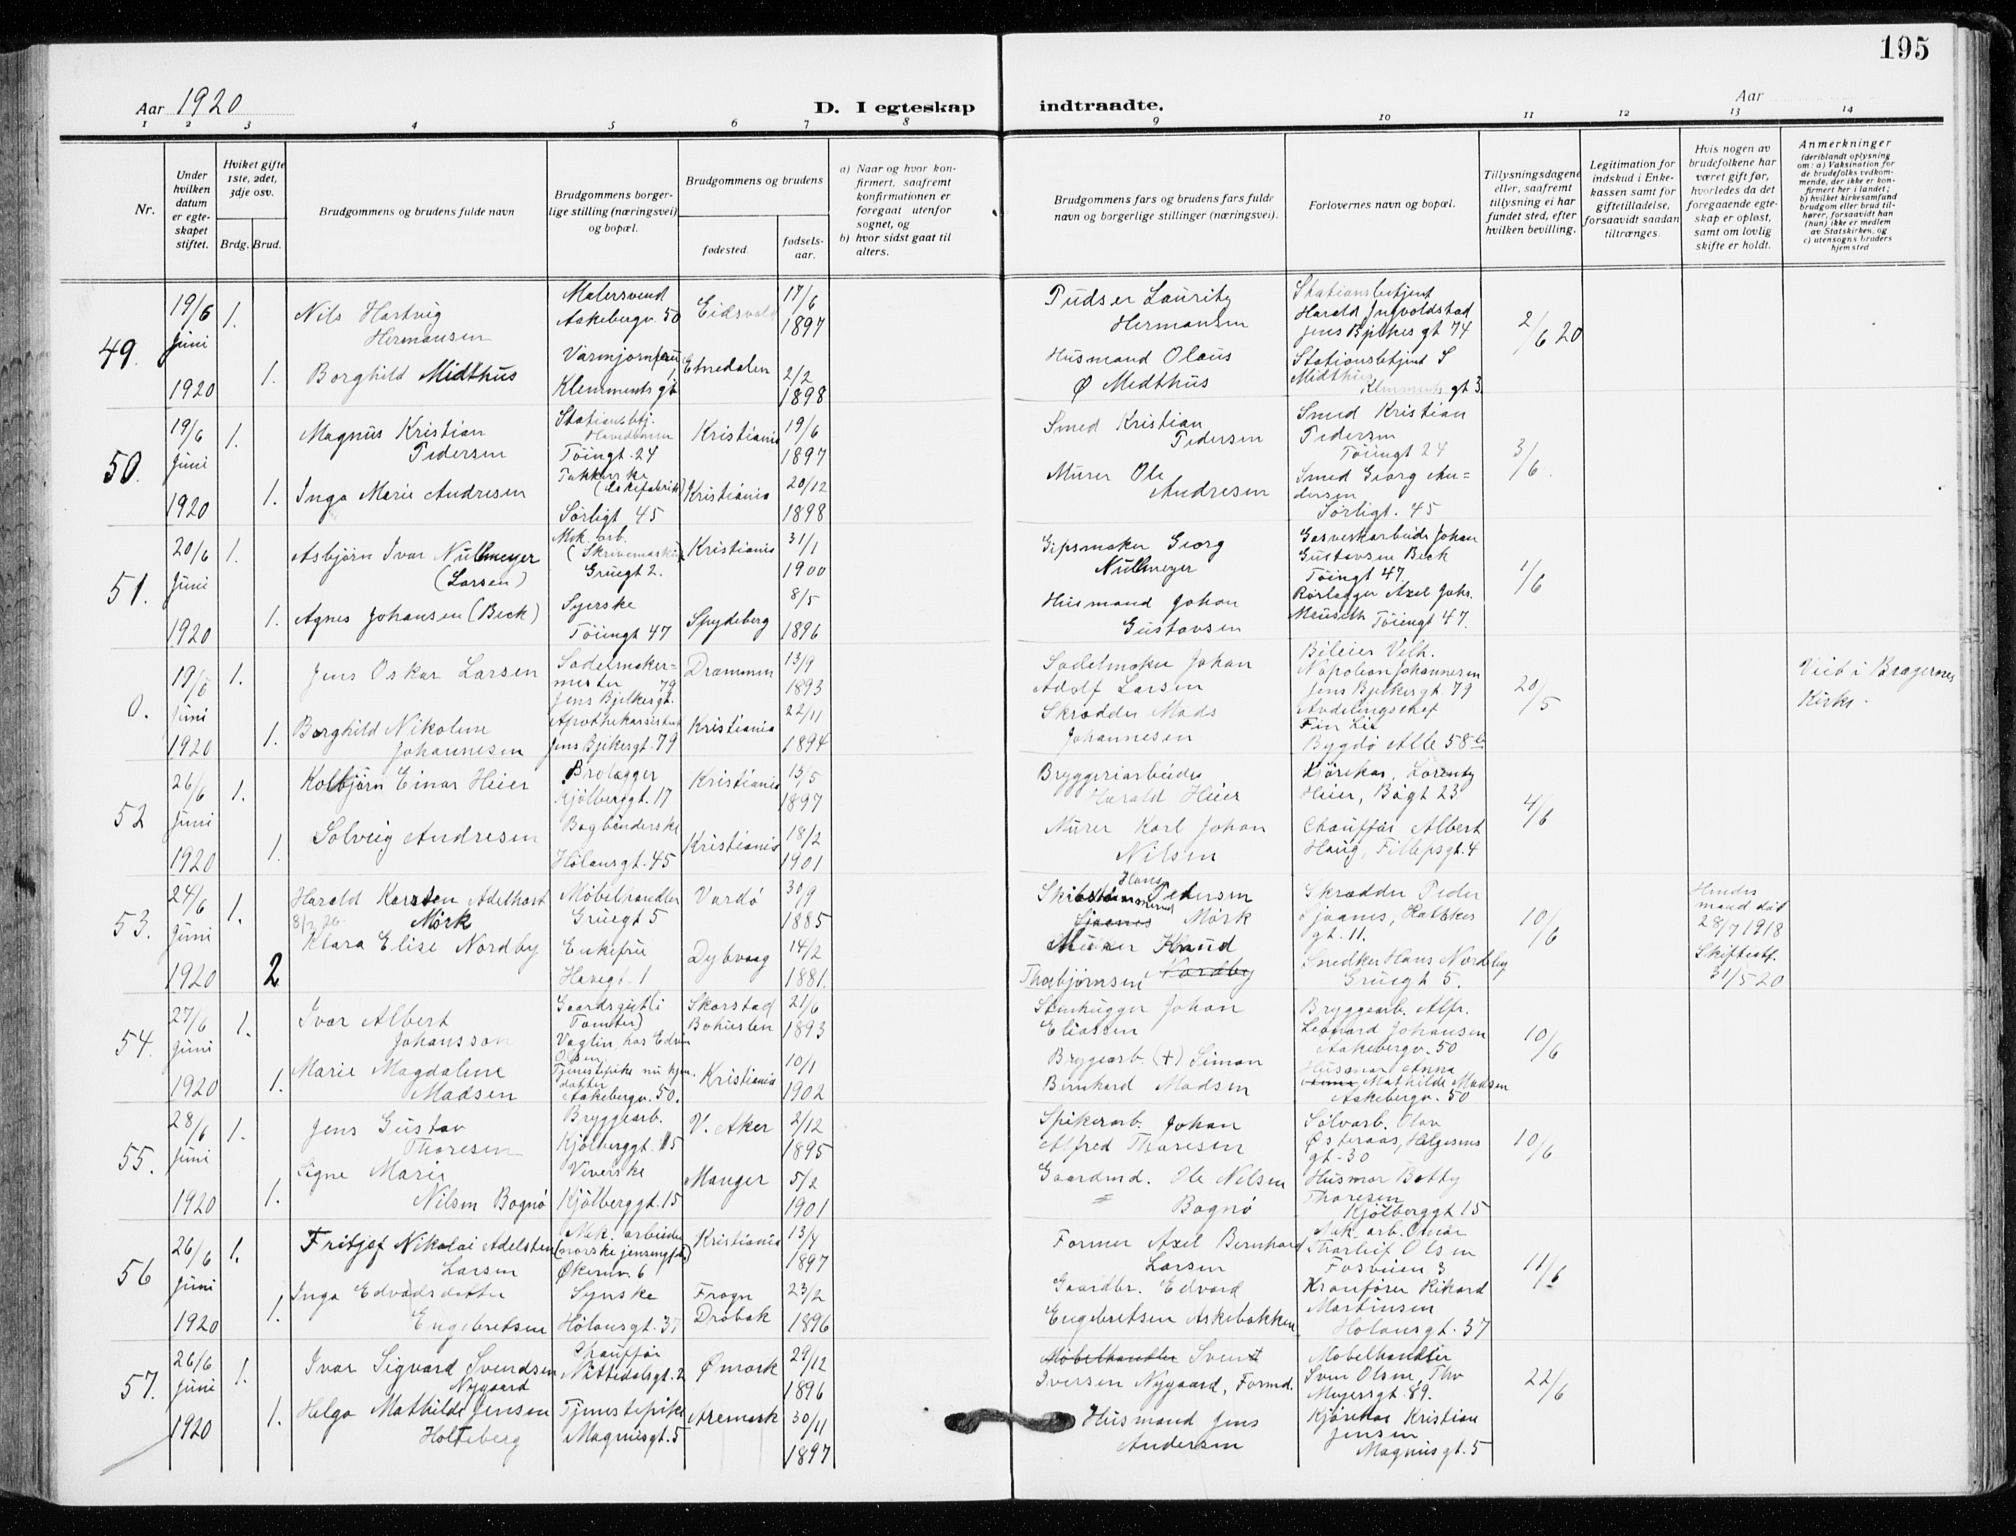 195
Aar 1920
D. I egteskap
indtraadte.
Aar
1 2 3 4 5 6 7 8 9 10 11 12 13 14
Nr.
Under
hvilken
datum
er egte-
skapet
stiftet.
Hviket gifte
1ste, 2det,
3dje osv.
Brdg. Brud.
Brudgommens og brudens fulde navn
Brudgommens borger-
lige stilling (næringsvei)
og bopæl.
Brudgommens og brudens
fødested.
fødsels-
aar.
a) Naar og hvor kon-
firmert, saafremt
konfirmationen er
foregaat utenfor
sognet, og
b) hvor sidst gaat til
alters.
Brudgommens fars og brudens fars fulde
navn og borgerlige stillinger (næringsvei).
Forlovernes navn og bopæl.
Tillysningsdagene
eller, saafremt
tillysning ei har
fundet sted, efter
hvilken bevilling.
Legitimation for
indskud i Enke-
kassen samt for
giftetilladelse,
forsaavidt saadan
tiltrænges.
Hvis nogen av
brudefolkene har
været gift før,
hvorledes da det
foregaaende egte-
skap er opløst,
samt om lovlig
skifte er holdt.
Anmerkninger
(deriblandt oplysning
om: a) Vaksination for
de brudefolks vedkom-
mende, der ikke er kon-
firmert her i landet;
b) hvilket kirkesamfund
brudgom eller brud til-
hører, forsaavidt han
(hun) ikke er medlem
av Statskirken, og
c) utensogns bruders
hjemsted
49. 19/6 Juni 1920
1. Nils Hartvig
Hermansen
Malersvend
Aakebergv. 50
Eidsvold
17/6
1897
Pudser Lauritz
Hermansen
Stationsbetjent
Harald Ingvoldstad
Jens Bjelkes gt 74
2/6 20
1. Borghild Midthus
Klemments gt
Etnedalen
2/2
1898
Husmand Olaus
Ø Midthus
Stationsbetjent S
Midthus
Klemments gt 3
50. 19/6 Juni 1920
1. Magnus Kristian
Pedersen
Stationsbtj.
Hovedbanen
Töiengt. 24
Kristiania
19/6
1897
Smed Kristian
Pedersen
Smed Kristian
Pedersen
Töiengt 24
3/6.
1. Inga Marie Andresen
Pakkerske
Sørligt 45
Kristiania
20/12
1898
Murer Ole
Andresen
Smed Georg An=
dersen
Sørligt. 45
51. 20/6 Juni 1920
1. Asbjörn Ivar Nullmeyer
(Larsen)
Mek. arb.
(Skrivemaskin
Gruegt 2.
Kristiania
31/1
1900
Gipsmaker Georg
Nullmeyer
Gasverkarbeider Johan
Gustavsen Beck
Töiengt 47
1/6
1. Agnes Johansen (Beck)
Syerske
Töiengt 47
Spydeberg
8/5
1896
Husmand Johan
Gustavsen
Rörlegger Axel Johs.
Mauseth Töiengt 47.
0. 19/6 Juni 1920
1. Jens Oskar Larsen
Sadelmaker=
mester 79
Jens Bjelkesgt.
Drammen
13/9
1893
Sadelmaker Johan
Adolf Larsen
Bileier Vilh.
Napoleon Johannesen
Jens Bjelkesgt 79
20/5
Viet i Bragernes
Kirke.
1. Borghild Nikoline
Johannesen
Apothekassistent
Jens Bjelkesgt. 79
Kristiania
22/11
1894
Skrædder Mads
Johannesen
Avdelingschef
Fin Lie
Bygdö Alle 58
52 26/6 Juni 1920
1. Kolbjörn Einar Heier
Brolægger
Kjölberggt. 17
Kristiania
15/5
1897
Bryggeriarbeider
Harald Heier
Kjørekar, Lorentz
Heier, Bögt 23
4/6
1. Solveig Andresen
Bogbinderske
Hølansgt. 45
Kristiania
18/2
1901
Murer Karl Johan
Nilsen
Chauffør Albert
Haug, Fillepsgt. 4
53. 24/6 Juni 1920
1. Harald Karsten Adelhart
Mörk
Möbelhandler
Gruegt 5
Vardö
30/9
1885
Hans Pedersen
Mörk
Skrædder Peder
Sjaanes, Heltzkes
gt. 11.
10/6
Hendes
mand död
28/7 1918
Skifteatt.
31/5 20
2 Klara Elise Nordby
Enkefrue
Haregt. 1
Dybvaag
14/2
1881.
Murer Knud
Thorbjörnsen Nordby
Snedker Hans Nordby
Gruegt 5.
54. 27/6 Juni 1920
1. Ivar Albert
Johansson
Gaardsgut (i
Tomter)
Vaglin, hos Edvin
Olsen
Skarstad
Bohuslen
21/6
1893
Stenhugger Johan
Eliassen
Bryggearb. Alfr.
Leonard Johansen
Aakebergv. 50
10/6
1. Marie Magdalene
Madsen
Tjenestepike nu hjem.
datter
Aakebergv. 50.
Kristiania
10/1
1902
Bryggearb. (+) Simon
Bernhard Madsen
Husmor Anna
Mathilde Madsen
Aakebergv. 50
55. 28/6 Juni 1920
1. Jens Gustav
Thoresen
Bryggearb.
Kjölberggt. 15
V. Aker
2/12
1895
Spikerarb. Johan
Alfred Thoresen
Sølvarb. Olav
Østeraas, Helgesens
gt. 30
10/6
1. Signe Marie
Nilsen Bognö
Veverske
Kjölberggt. 15
Manger
5/2
1901
Gaardmd. Ole Nilsen
Bognö
Husmor Betty
Thoresen
Kjölberggt 15
56 26/6 Juni 1920
1. Fritjof Nikolai Adelsten
Larsen
Mek. arbeider
Økernv. 6
Kristiania
13/7
1897
Former Axel Bernhard
Larsen
Mek. arb. Omar
Thorleif Olsen
Fosveien 3
11/6
1. Inga Edvardsdatter
Engebretsen
Syerske
Hølansgt. 37
Frogn
Dröbak
23/2
1896
Gaardbr. Edvard
Engebretsen Askebakken
Kranförer Rikard
Martinsen
Holansgt. 37
57. 26/6 Juni 1920
1. Ivar Sigvard Svendsen
Nygaard
Chauffør
Nittedalsgt. 2
Ømark
29/12
1896
Möbelhandler Svend
Iversen Nygaard, Formd.
Møbelhandler
Sven Olsen, Thv
Meyersgt. 89.
22/6
1. Helga Mathilde Jensen
Holteberg
Tjenestepike
Magnusgt. 5
Aremark
30/11
1897
Husmand Jens
Andersen
Kjørekar Kristian
Jensen
Magnusgt. 5